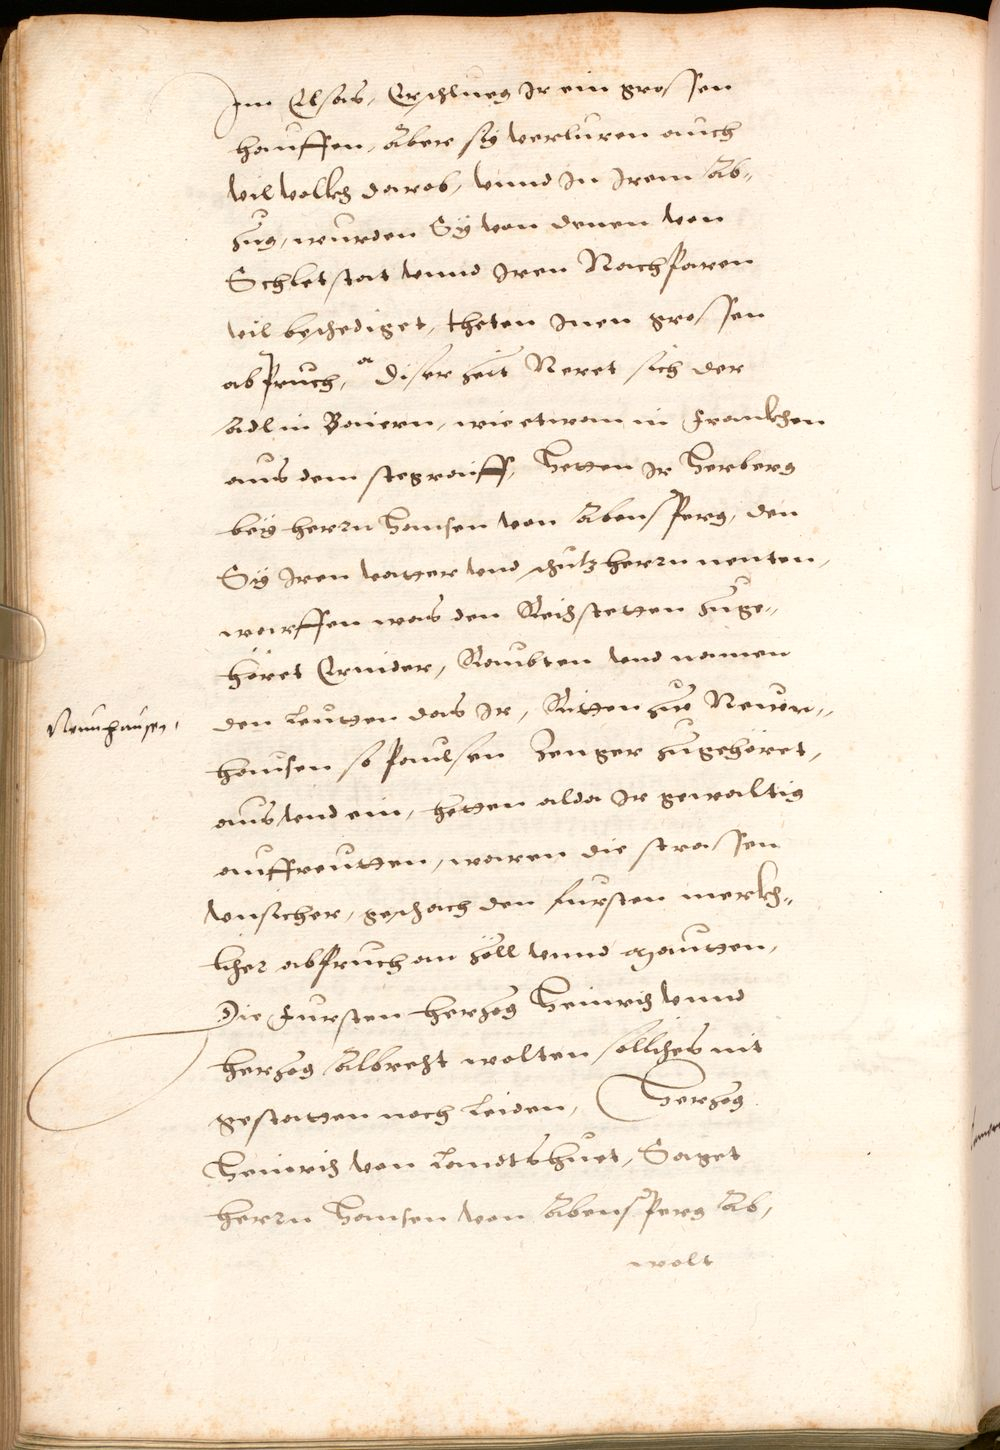 Im Elsas, Erschlueg Ir ein grossen
hauffen, Aber sy verluren auch
vil volkhs darob, vnnd In Irem Ab„
zug, wurden Sÿ von denen von
Schletstat vnnd Iren Nachparen
vil beschediget, theten Inen grossen
abpruch, Diser zeit Neret sich der
Adl in Baiern, wie etwan in Frankhen
aus dem stegraiff, Hetten Ir Herberg
beÿ herrn Hansen von Abensperg, den
Sÿ Iren vatter vnd schutzherrn nenten,
warffen was den Reichstetten zuge„
höret Ernider, Raubten vnd namen
den leutten das Ir, Ritten zue Neuen„
Neunhausen,
hausen so Paulsen Zenger zugehöret,
aus vnd ein, hetten alda Ir gewaltig
auffreutten, waren die strassen
vnsicher, geschach den fursten merkh„
licher abpruch an zöll vnnd Mautten,
Die Fursten herzog Heinrich vnnd
herzog Albrecht wolten sollches nit
gestatten noch leiden, Herzog
Heinrich von Landtshuet, Saget
herrn Hansen von Abensperg Ab,
wolt